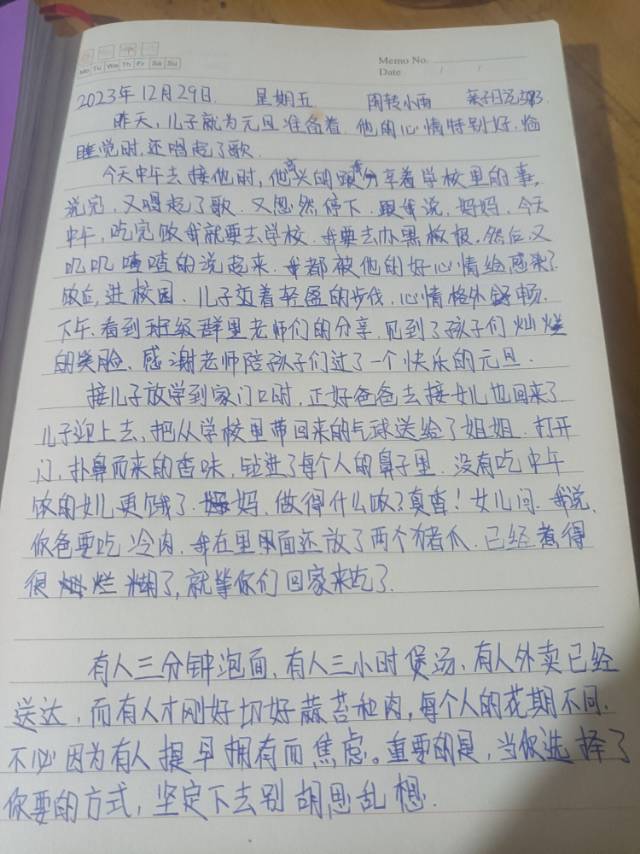 Memo No.
Mo Tu We Th Fr Sa Su
Date / /
2023年12月29日 星期五 周转小雨 亲子日记
昨天,儿子就为元旦准备着.他的心情特别好,临
睡觉时,还唱起了歌.
今天中午去接他时,他高兴的跟我分享着学校里的事,
说完,又唱起了歌.又忽然停下.跟我说,妈妈,今天
中午,吃完饭我就要去学校.我要去办黑板报.然后又
叽叽喳喳的说起来.我都被他的好心情给感染了.
饭后,进校园.儿子迈着轻盈的步伐,心情格外舒畅.
下午.看到班级群里老师们的分享,见到了孩子们灿烂
的笑脸.感谢老师陪孩子们过了一个快乐的元旦.
接儿子放学到家门口时,正好爸爸去接女儿也回来了.
儿子迎上去,把从学校里带回来的气球送给了姐姐.打开
门,扑鼻而来的香味,钻进了每个人的鼻子里.没有吃中午
饭的女儿更饿了.妈,做得什么饭?真香!女儿问.我说.
你爸要吃冷肉,我在里面还放了两个猪爪.已经煮得
很烂糊了,就等你们回家来吃了.
有人三分钟泡面,有人三小时煲汤,有人外卖已经
送达,而有人才刚好切好蒜苔和肉,每个人的花期不同.
不必因为有人提早拥有而焦虑。重要的是,当你选择了
你要的方式,坚定下去别胡思乱想.